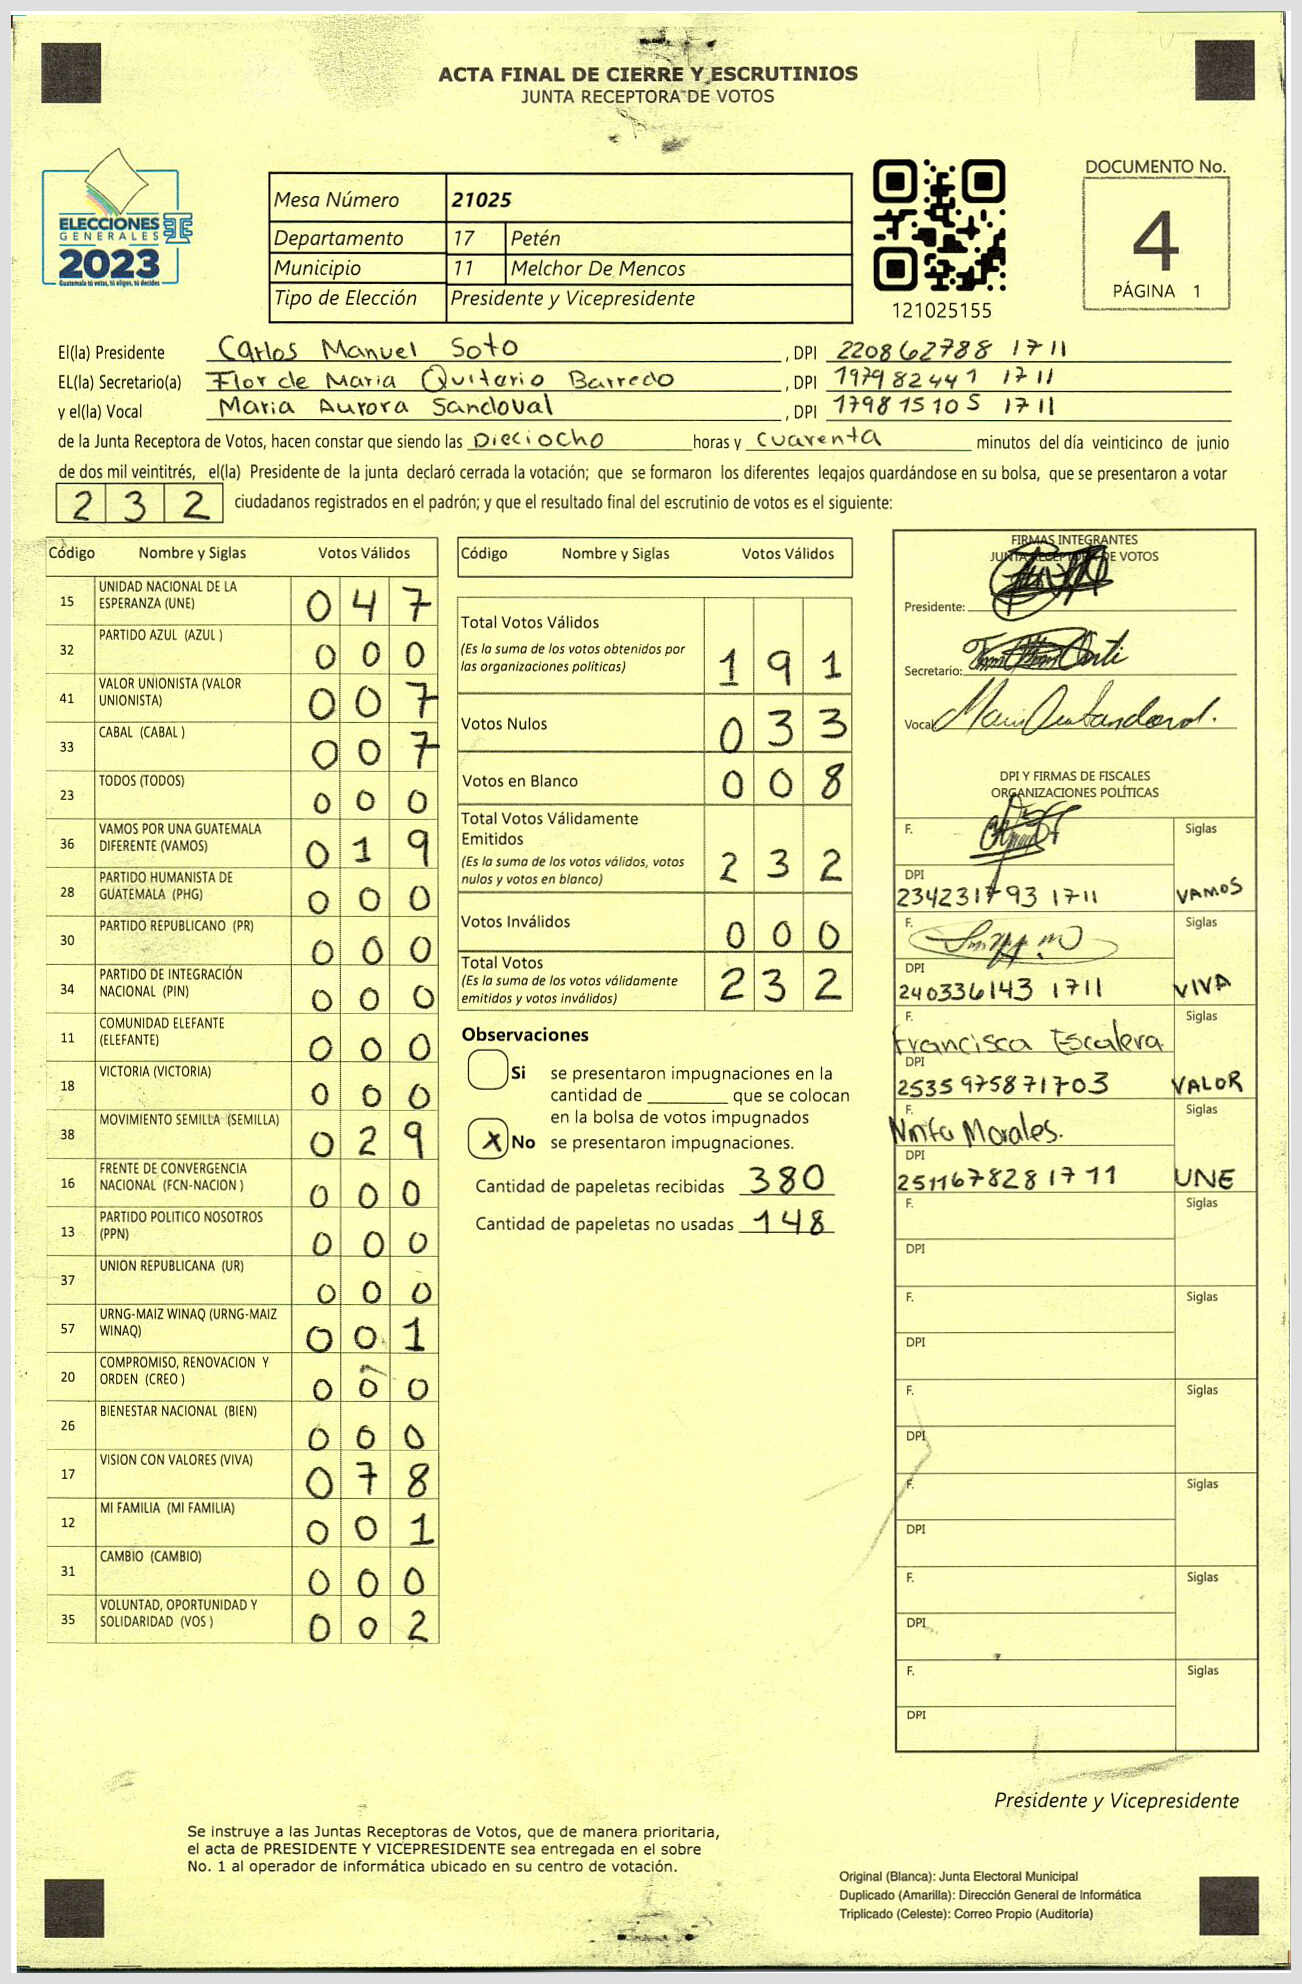 ACTA FINAL DE CIERRE Y ESCRUTINIOS
JUNTA RECEPTORA DE VOTOS
ELECCIONES
GENERALES
2023
Guatemala tú votas, tú eliges, tú decides
Mesa Número 21025
Departamento 17 Petén
Municipio 11 Melchor De Mencos
Tipo de Elección Presidente y Vicepresidente
121025155
DOCUMENTO No.
4
PÁGINA 1
El(la) Presidente Carlos Manuel Soto , DPI 220862788 1711
EL(la) Secretario(a) Flor de Maria Quitario Barredo , DPI 197982441 1711
y el(la) Vocal Maria Aurora Sandoval , DPI 179815105 1711
de la Junta Receptora de Votos, hacen constar que siendo las Dieciocho horas y cuarenta minutos del día veinticinco de junio
de dos mil veintitrés, el(la) Presidente de la junta declaró cerrada la votación; que se formaron los diferentes legajos guardándose en su bolsa, que se presentaron a votar
232 ciudadanos registrados en el padrón; y que el resultado final del escrutinio de votos es el siguiente:
Código Nombre y Siglas Votos Válidos
15 UNIDAD NACIONAL DE LA ESPERANZA (UNE) 047
32 PARTIDO AZUL (AZUL ) 000
41 VALOR UNIONISTA (VALOR UNIONISTA) 007
33 CABAL (CABAL ) 007
23 TODOS (TODOS) 000
36 VAMOS POR UNA GUATEMALA DIFERENTE (VAMOS) 019
28 PARTIDO HUMANISTA DE GUATEMALA (PHG) 000
30 PARTIDO REPUBLICANO (PR) 000
34 PARTIDO DE INTEGRACIÓN NACIONAL (PIN) 000
11 COMUNIDAD ELEFANTE (ELEFANTE) 000
18 VICTORIA (VICTORIA) 000
38 MOVIMIENTO SEMILLA (SEMILLA) 029
16 FRENTE DE CONVERGENCIA NACIONAL (FCN-NACION ) 000
13 PARTIDO POLITICO NOSOTROS (PPN) 000
37 UNION REPUBLICANA (UR) 000
57 URNG-MAIZ WINAQ (URNG-MAIZ WINAQ) 001
20 COMPROMISO, RENOVACION Y ORDEN (CREO ) 000
26 BIENESTAR NACIONAL (BIEN) 000
17 VISION CON VALORES (VIVA) 078
12 MI FAMILIA (MI FAMILIA) 001
31 CAMBIO (CAMBIO) 000
35 VOLUNTAD, OPORTUNIDAD Y SOLIDARIDAD (VOS ) 002
Código Nombre y Siglas Votos Válidos
Total Votos Válidos
(Es la suma de los votos obtenidos por
las organizaciones políticas) 191
Votos Nulos 033
Votos en Blanco 008
Total Votos Válidamente
Emitidos
(Es la suma de los votos válidos, votos
nulos y votos en blanco) 232
Votos Inválidos 000
Total Votos
(Es la suma de los votos válidamente
emitidos y votos inválidos) 232
Observaciones
Si se presentaron impugnaciones en la
cantidad de ________ que se colocan
en la bolsa de votos impugnados
X No se presentaron impugnaciones.
Cantidad de papeletas recibidas 380
Cantidad de papeletas no usadas 148
FIRMAS INTEGRANTES
JUNTA RECEPTORA DE VOTOS
Presidente:
Secretario:
Vocal
DPI Y FIRMAS DE FISCALES
ORGANIZACIONES POLÍTICAS
F. Siglas
DPI
234231793 1711 VAMOS
F. Siglas
DPI
240336143 1711 VIVA
F. Siglas
Francisca Escalera
DPI
2535975871703 VALOR
F. Siglas
Ninfa Morales.
DPI
2511678281711 UNE
F. Siglas
DPI
F. Siglas
DPI
F. Siglas
DPI
F. Siglas
DPI
F. Siglas
DPI
F. Siglas
DPI
Presidente y Vicepresidente
Se instruye a las Juntas Receptoras de Votos, que de manera prioritaria,
el acta de PRESIDENTE Y VICEPRESIDENTE sea entregada en el sobre
No. 1 al operador de informática ubicado en su centro de votación.
Original (Blanca): Junta Electoral Municipal
Duplicado (Amarilla): Dirección General de Informática
Triplicado (Celeste): Correo Propio (Auditoría)